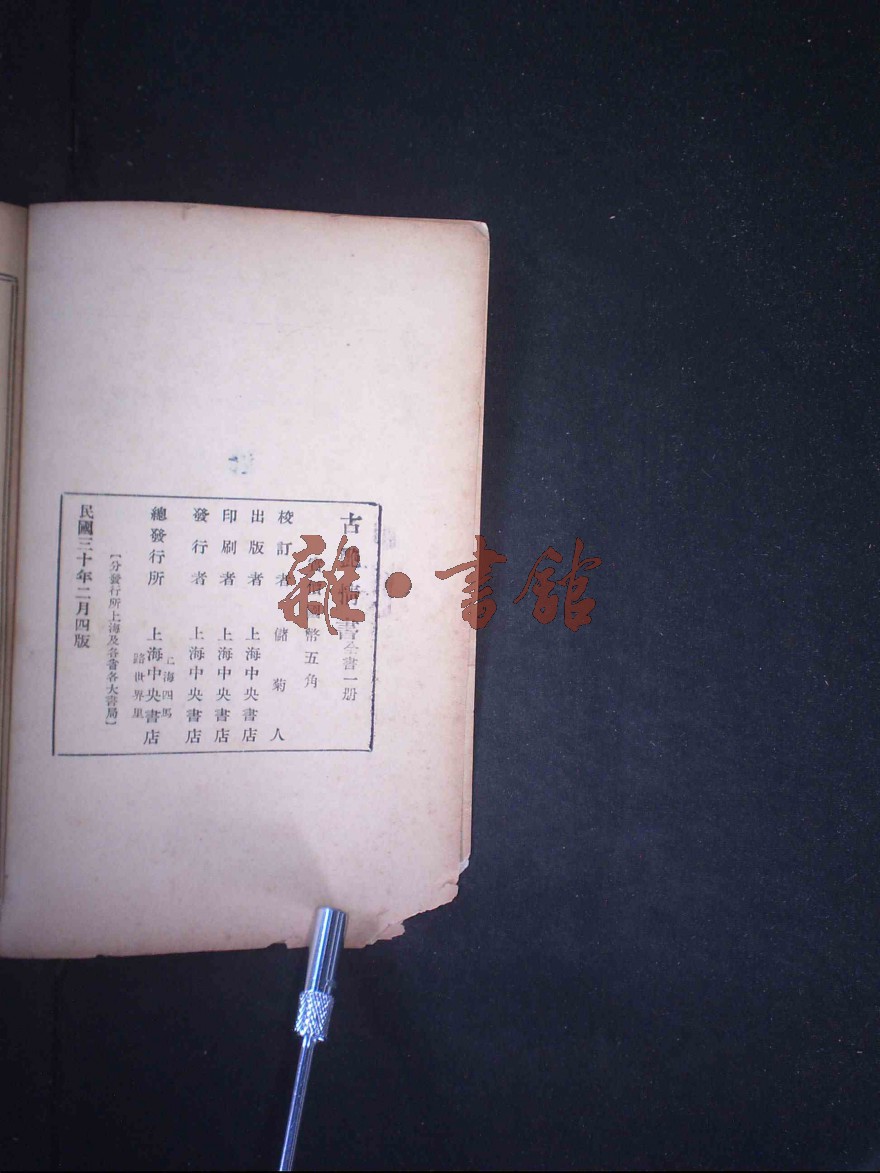 古艷情書全書一册
實價國幣五角
校訂者 儲菊人
出版者 上海中央書店
印刷者 上海中央書店
發行者 上海中央書店
總發行所 上海四馬路世界里 上海中央書店
【分發行所上海及各省各大書局】
民國三十年二月四版
雜·書館